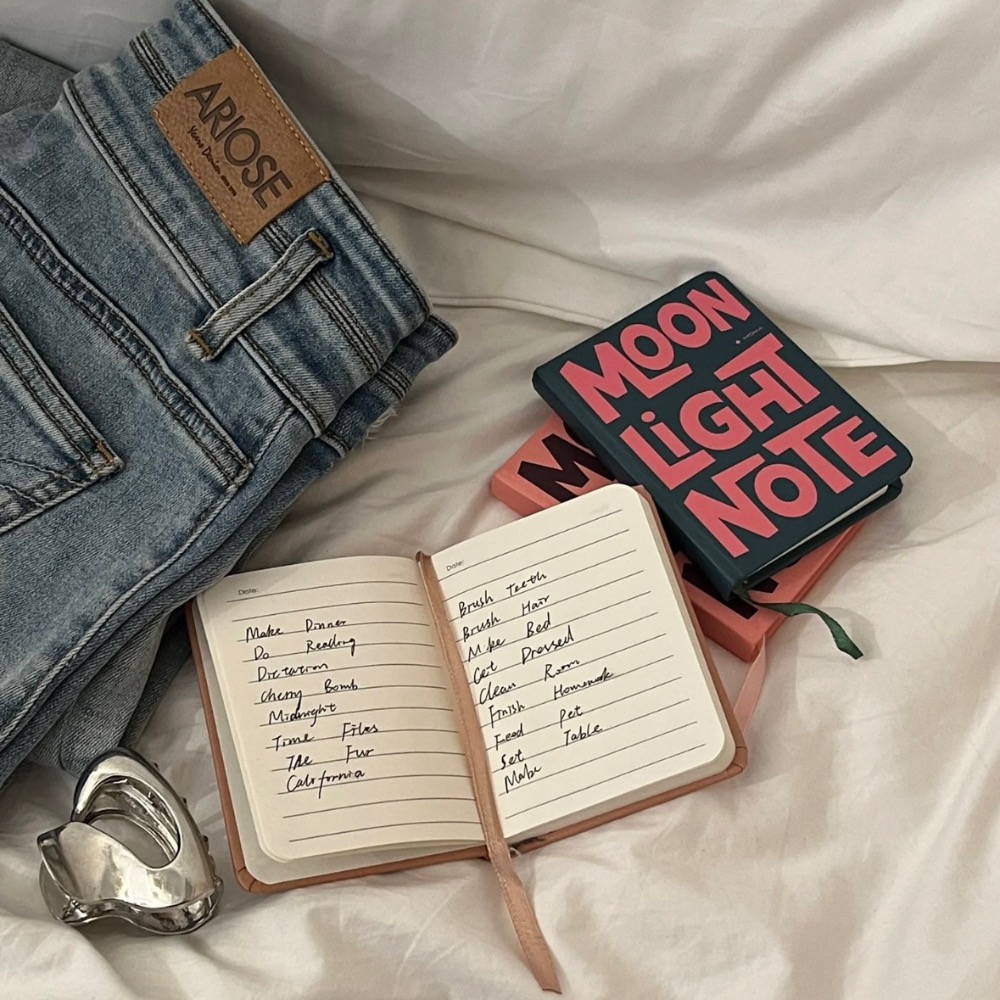 ARIOSE
MOON
LiGHT
NOTE
M
Date:
Make Dinner
Do Reading
Dictation
Cherry Bomb
Midnight
Time Files
The Fur
California
Date:
Brush Teeth
Brush Hair
Make Bed
Get Dressed
Clean Room
Finish Homework
Feed Pet
Set Table
Make